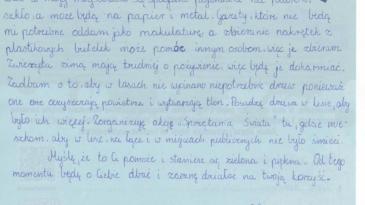 szkło a może będą na papier i metal. Gazety, które nie będą
mi potrzebne oddam jako makulaturę a zbieranie nakrętek z
plastikowych butelek może pomóc innym osobom więc je zbieram.
Zwierzęta zimą mają trudniej o pożywienie więc będę je dokarmiać.
Zadbam o to, aby w lasach nie wycinano niepotrzebnie drzew ponieważ
one oczyszczają powietrze i wytwarzają tlen. Posadzę drzewa w lesie, aby
było ich więcej. Zorganizuję akcję „Sprzątania Świata" tu, gdzie mie-
szkam, aby w lesie, na łące i w miejscach publicznych nie było śmieci.
Myślę, że to Ci pomoże i staniesz się zielona i piękna. Od tego
momentu będę o Ciebie dbać i zacznę działać na twoją korzyść.